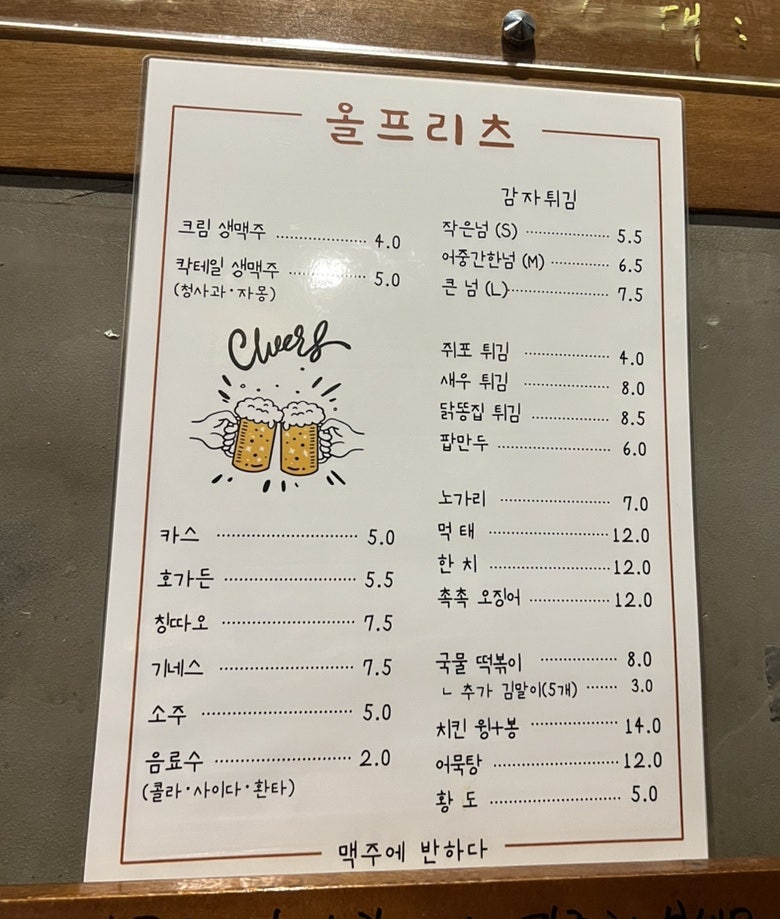 올프리츠
크림 생맥주 4.0
칵테일 생맥주 5.0
(청사과·자몽)
Cheers
카스 5.0
호가든 5.5
칭따오 7.5
기네스 7.5
소주 5.0
음료수 2.0
(콜라·사이다·환타)
감자튀김
작은넘 (S) 5.5
어중간한넘 (M) 6.5
큰 넘 (L) 7.5
쥐포 튀김 4.0
새우 튀김 8.0
닭똥집 튀김 8.5
팝만두 6.0
노가리 7.0
먹태 12.0
한치 12.0
촉촉 오징어 12.0
국물 떡볶이 8.0
ㄴ 추가 김말이(5개) 3.0
치킨 윙+봉 14.0
어묵탕 12.0
황도 5.0
맥주에 반하다